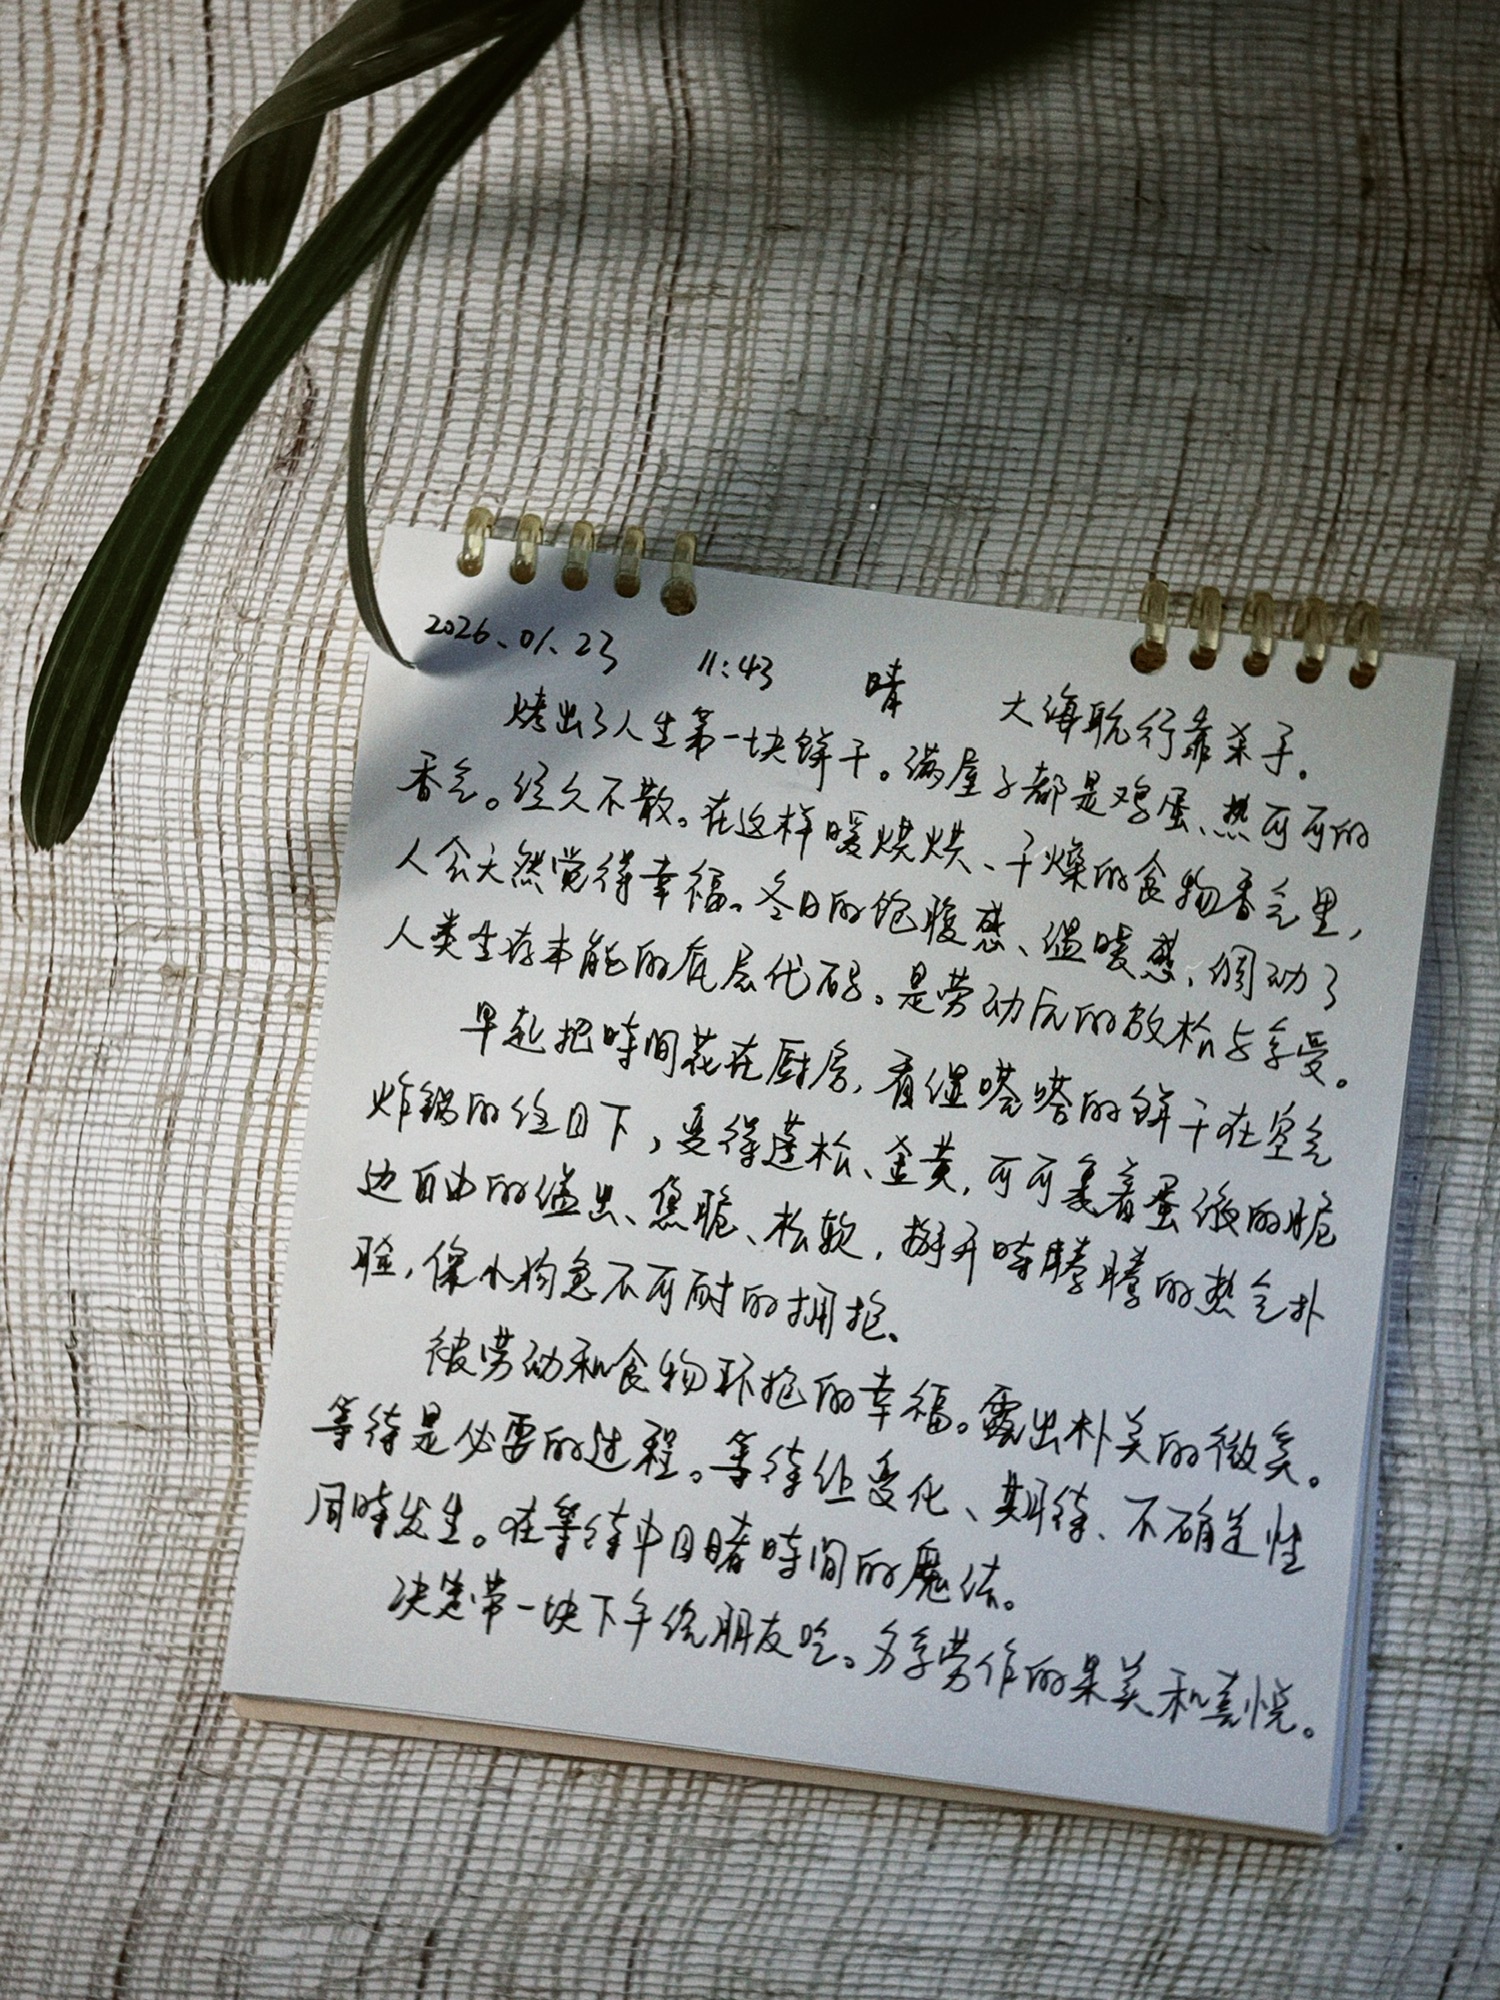 2026.01.23 11:43 晴 大海航行靠杀子.
烤出了人生第一块饼干。满屋子都是鸡蛋、热可可的
香气。经久不散。在这样暖烘烘、干燥的食物香气里,
人会天然觉得幸福。冬日的饱腹感、温暖感,调动了
人类生存本能的底层代码。是劳动后的放松与享受。
早起把時间花在厨房,看湿嗒嗒的饼干在空气
炸锅的红日下,变得蓬松、金黄,可可裹着蛋液的脆
边自由的溢出、焦脆、松软,掰开時腾腾的热气扑
脸,像小狗急不可耐的拥抱、
被劳动和食物环抱的幸福。露出朴美的微笑。
等待是必要的过程。等待组变化、期待、不确定性
同時发生。在等待中目睹時间的魔法。
决定带一块下午给朋友吃。分享劳作的果美和喜悦。